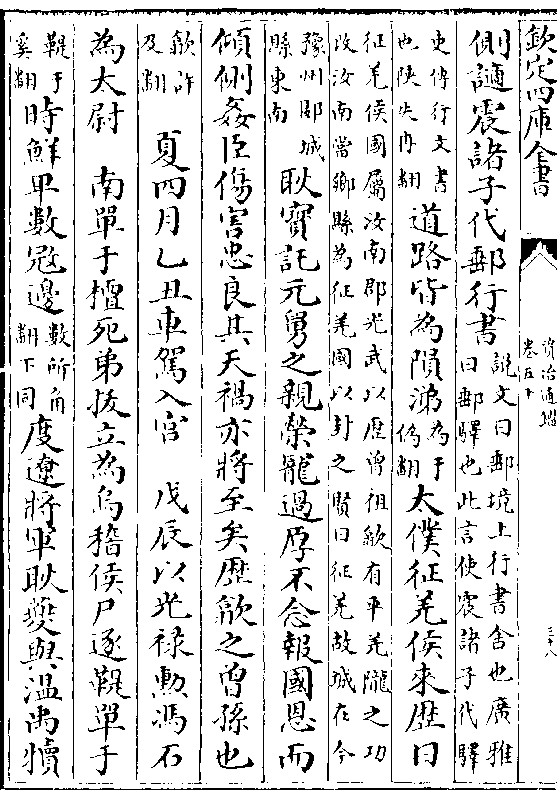 欽定四庫全書
資治通鑑
卷五十
三十八
側讁震諸子代郵行書說文曰郵境上行書舍也廣雅曰郵驛也此言使震諸子代驛
吏傳行文書也陜失冉翻道路皆為隕涕為于偽翻太僕征羌侯來歷曰
征羌侯國屬汝南郡光武以歷曾祖歙有平羌隴之功改汝南當鄉縣為征羌國以封之賢曰征羌故城在今
豫州郾城縣東南耿寳託元舅之親榮寵過厚不念報國恩而
傾側姦臣傷害忠良其天禍亦將至矣歷歙之曾孫也
歙許及翻 夏四月乙丑車駕入宫 戊辰以光禄勲馮石
為太尉 南單于檀死弟拔立為烏稽侯尸逐鞮單于
鞮于奚翻時鮮卑數冦邊數所角翻下同度遼將軍耿夔與温禺犢